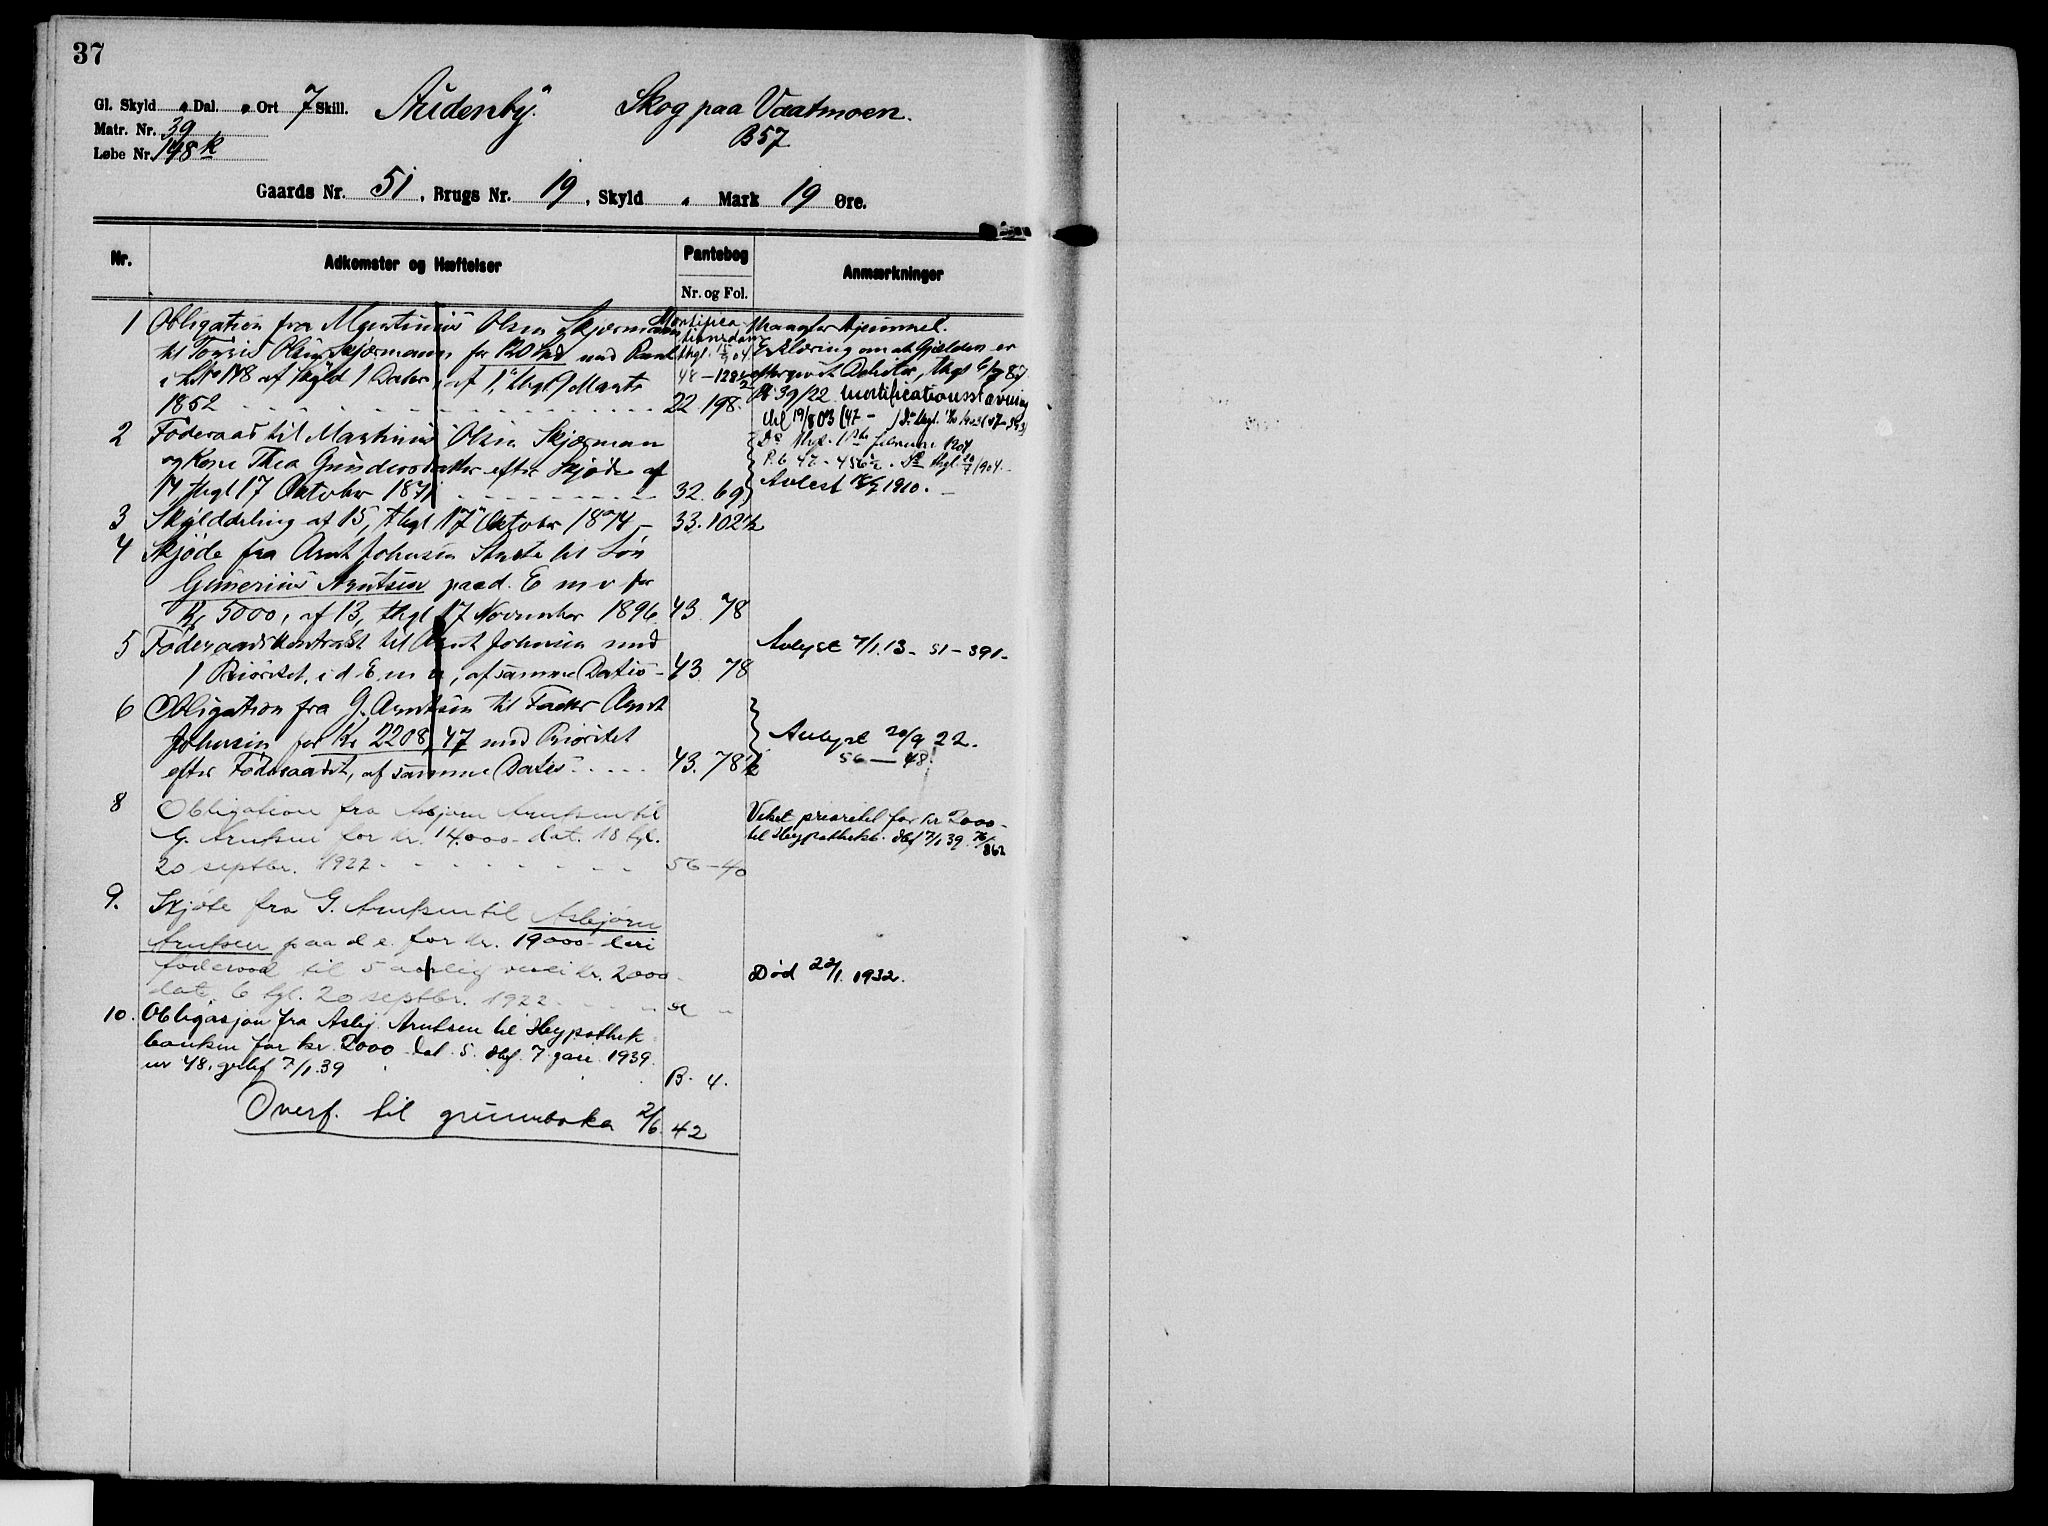 37
Gl. Skyld „ Dal. „ Ort 7 Skill. Audenby. Skog paa Vaatmoen.
Matr. Nr. 39 B 57
Løbe Nr. 148 k
Gaards Nr. 51, Brugs Nr. 19, Skyld „ Mark 19 Øre.
Nr. Adkomster og Hæftelser Pantebog Anmærkninger
Nr. og Fol.
1 Obligation fra Martinius Olsen Skjærmann
til Olsen Skjærmann for 120 Spd med Pant
i LNo 148 af Skyld 1 Daler, af 1, thgl 9 Marts
1852 22. 198.
Mortifica-
tionsdom
thgl. 15/9 04
48 – 128 1/2
Mangler Hjemmel.
Erklæring om at Gjælden er
eftergivet Debitor, thgl 6/7 87
P. 39/22. Mortificationsstævning
2 Føderaad til Martinius Olsen Skjærman
og Kone Thea Gundersdatter efter Skjøde af
14 thgl 17 Oktober 1871 32. 69
Avlest 1910.
3 Skylddeling af 15, thgl 17 Oktober 1874 – 33. 102 1/2
4 Skjøde fra Arnt Johnsen til Søn
Gunerius Arntsen paa d. E m v for
Kr 5000, af 13, thgl 17 November 1896 43. 78
5 Føderaadskontrakt til Arnt Johnsen med
1 Prioritet, i d E m v, af samme Datis – 43. 78
Avlyst 7/1.13 – 51 – 391 –
6 Obligation fra G. Arntsen til Fader Arnt
Johnsen for Kr 2208,47 med Prioritet
efter Føderaadet, af samme Datis 43. 78 1/2
Avlyst 20/9 22.
56 – 48
8 Obligation fra Asbjørn Arntsen til
G. Arntsen for kr. 14.000 – dat. 18 tgl.
20 septbr. 1922 56 – 40
Veket prioritet for kr 2000 –
til Hypothekb. dbf 7/1 39. 76/862
9. Skjøte fra G. Arntsen til Asbjørn
Arntsen paa d e. for kr. 19000 – deri
føderaad til 5 aarlig verdi kr. 2000 –
dat. 6 tgl. 20 septbr. 1922
Død 22/1. 1932.
10. Obligasjon fra Asbj. Arntsen til Hypothek-
banken for kr. 2000 – dat. 5. dbf. 7. jan. 1939.
nr 48. 7/1.39 B. 4.
Overf. til grunnboka 2/6. 42